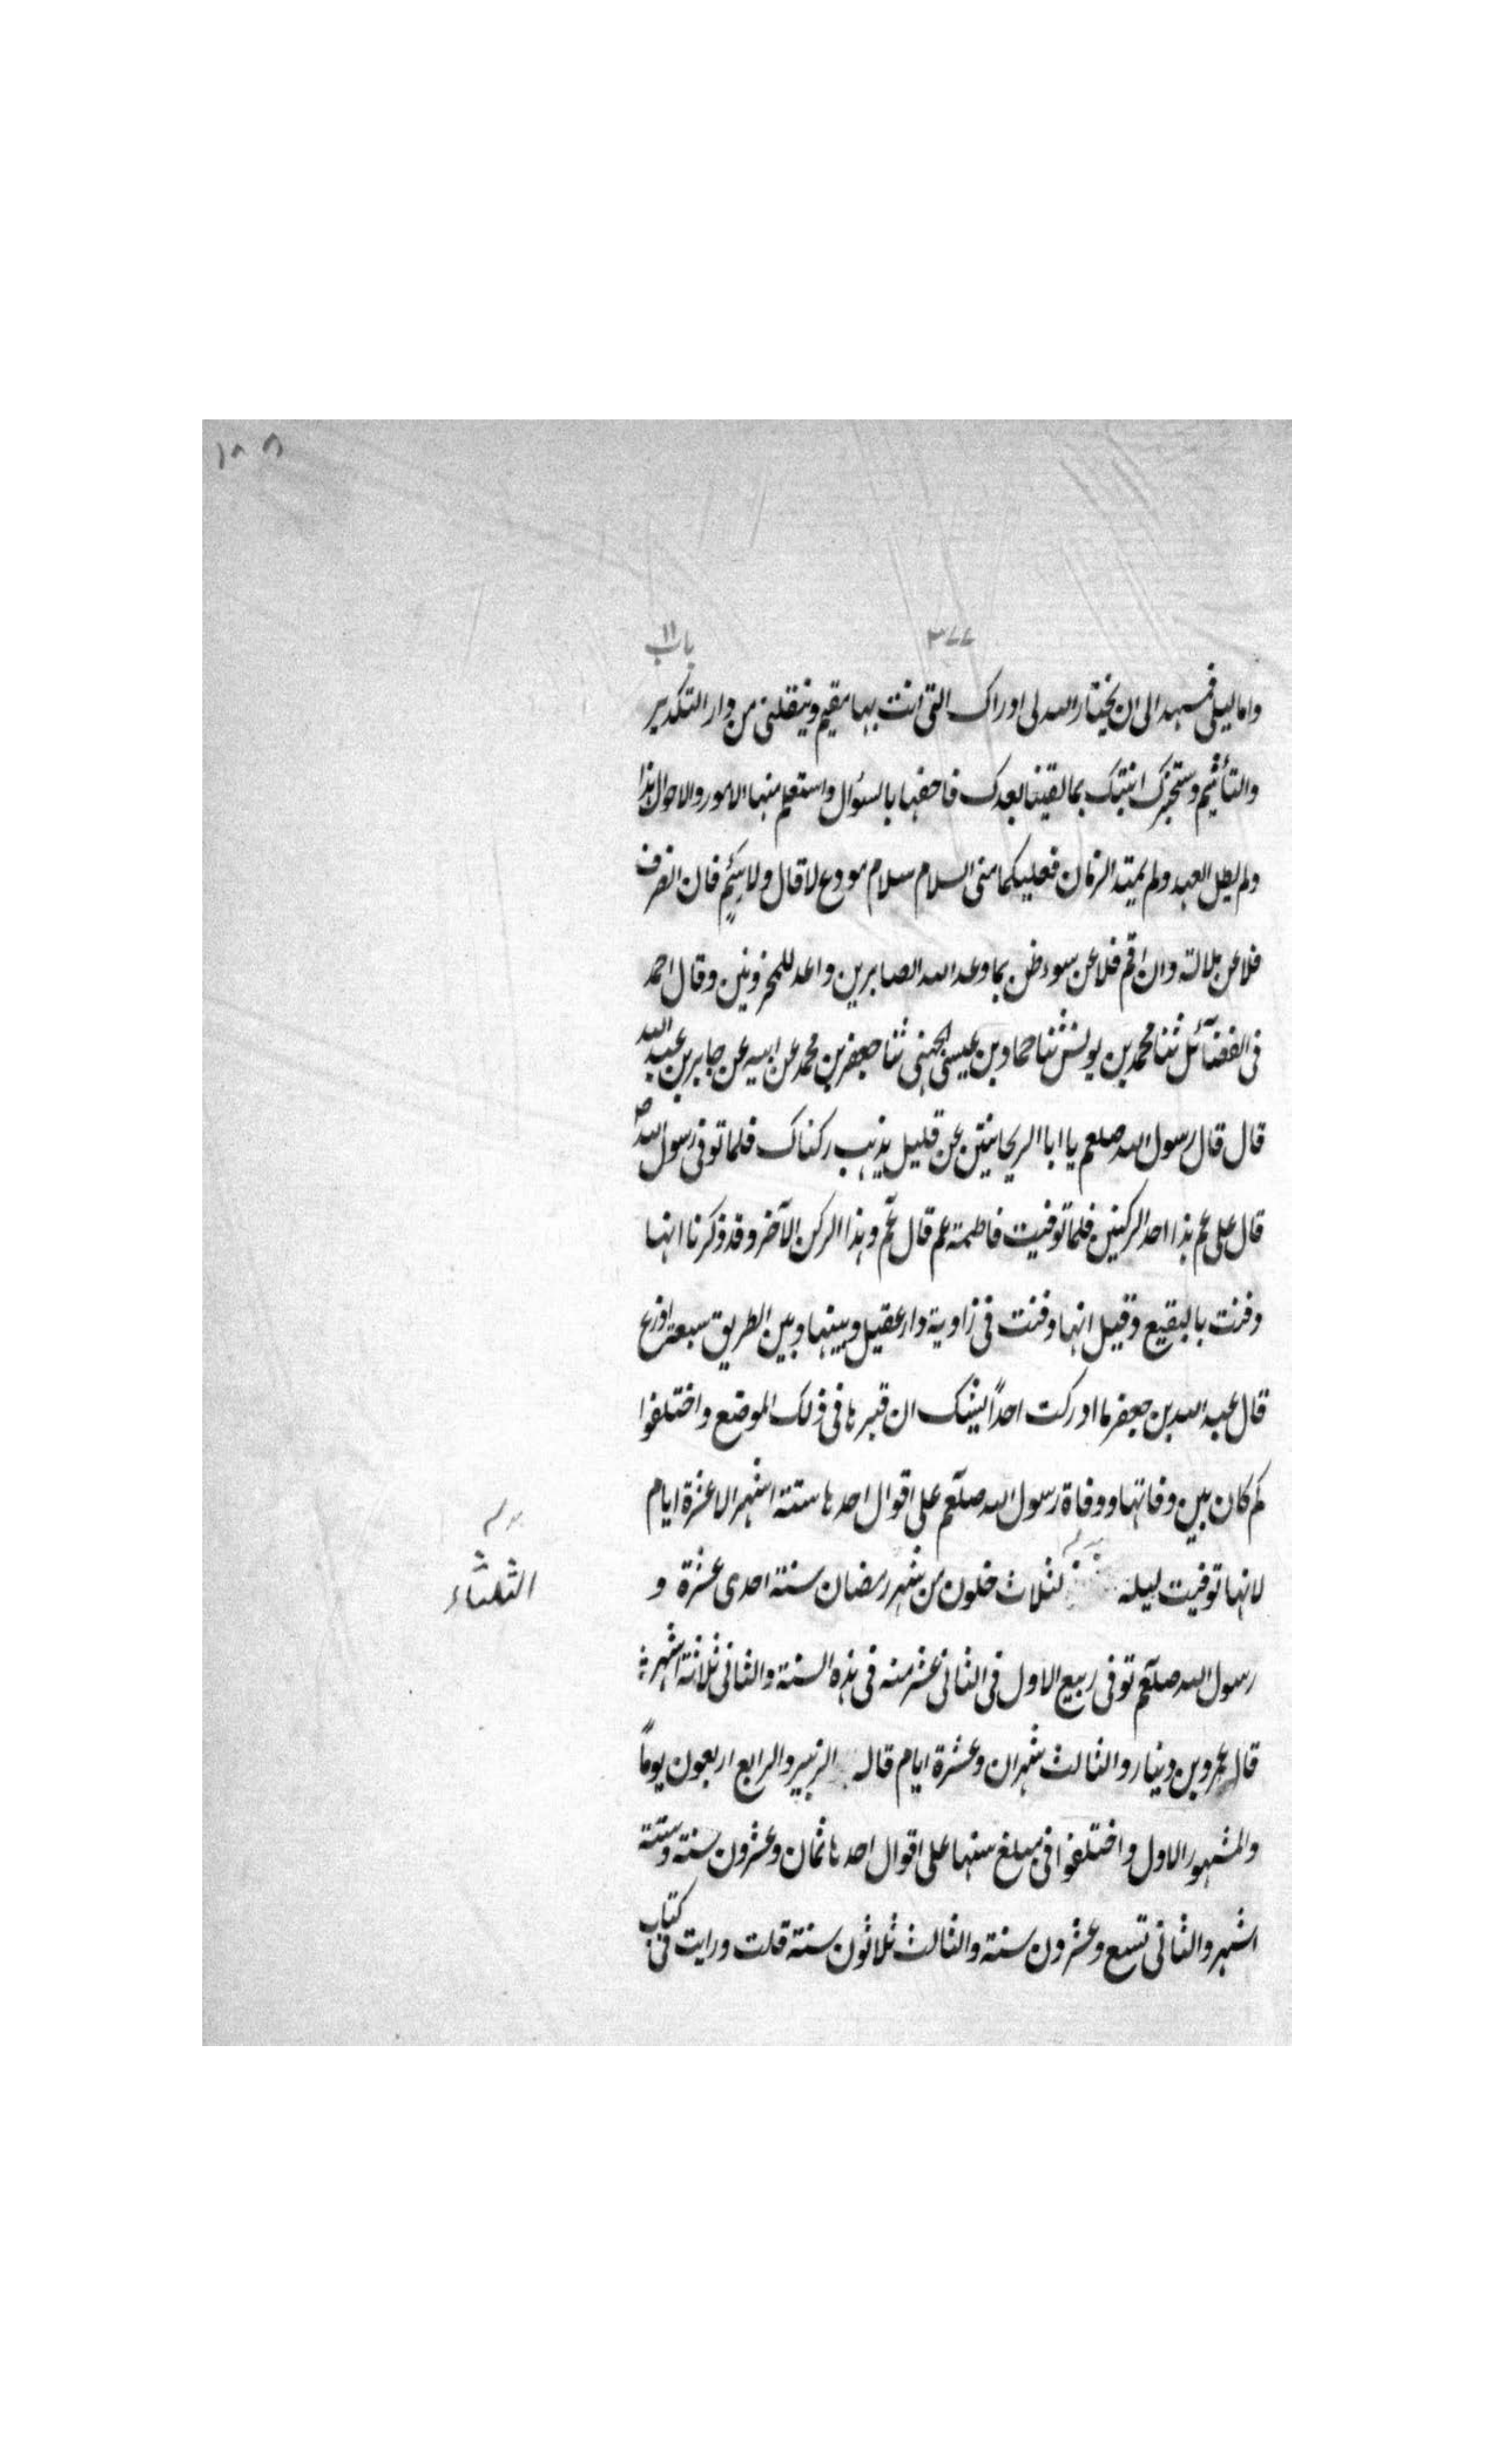 ١٨٨
٣٧٧
باب ١١
واما ليلى فمسهد الى ان يختار الله لى ادراك التى انت بها مقيم وينقلنى من دار التكدير
والتأثيم وستخبرك ابنتك بما لقينا بعدك فاحفها بالسؤال واستعلم منها الامور والاحوال هذا
ولم يطل العهد ولم يمتد الزمان فعليكما منى السلام سلام مودع لا قال ولا سَئِمٍ فان انصرف
فلا عن ملالة وان اقم فلا عن سوء ظن بما وعد الله الصابرين واعد للمحزونين وقال احمد
فى الفضآئل ثنا محمد بن يونس ثنا حماد بن عيسى الجهنى ثنا جعفر بن محمد عن ابيه عن جابر بن عبد الله
قال قال رسول الله صلعم يا ابا الريحانتين عن قليل يذهب ركناك فلما توفى رسول الله ص
قال على عم هذا احد الركنين فلما توفيت فاطمة عم قال عم وهذا الركن الآخر وقد ذكرنا انها
دفنت بالبقيع وقيل انها دفنت فى زاوية دار عقيل وبينها وبين الطريق سبعة اذرع
قال عبد الله بن جعفر ما ادركت احداً يشك ان قبرها فى ذلك الموضع واختلفوا
كم كان بين وفاتها ووفاة رسول الله صلعم على اقوال احدها ستة اشهر الا عشرة ايام
لانها توفيت ليله لثلاث خلون من شهر رمضان سنة احدى عشرة و
الثلثاء
رسول الله صلعم توفى ربيع الاول فى الثانى عشر منه فى هذه السنة والثانى ثلاثة اشهر
قال عمرو بن دينار والثالث شهران وعشرة ايام قاله الزبير والرابع اربعون يوماً
والمشهور الاول واختلفوا فى مبلغ سنها على اقوال احدها ثمان وعشرون سنة وستة
اشهر والثانى تسع وعشرون سنة والثالث ثلاثون سنة قلت ورايت فى كتاب